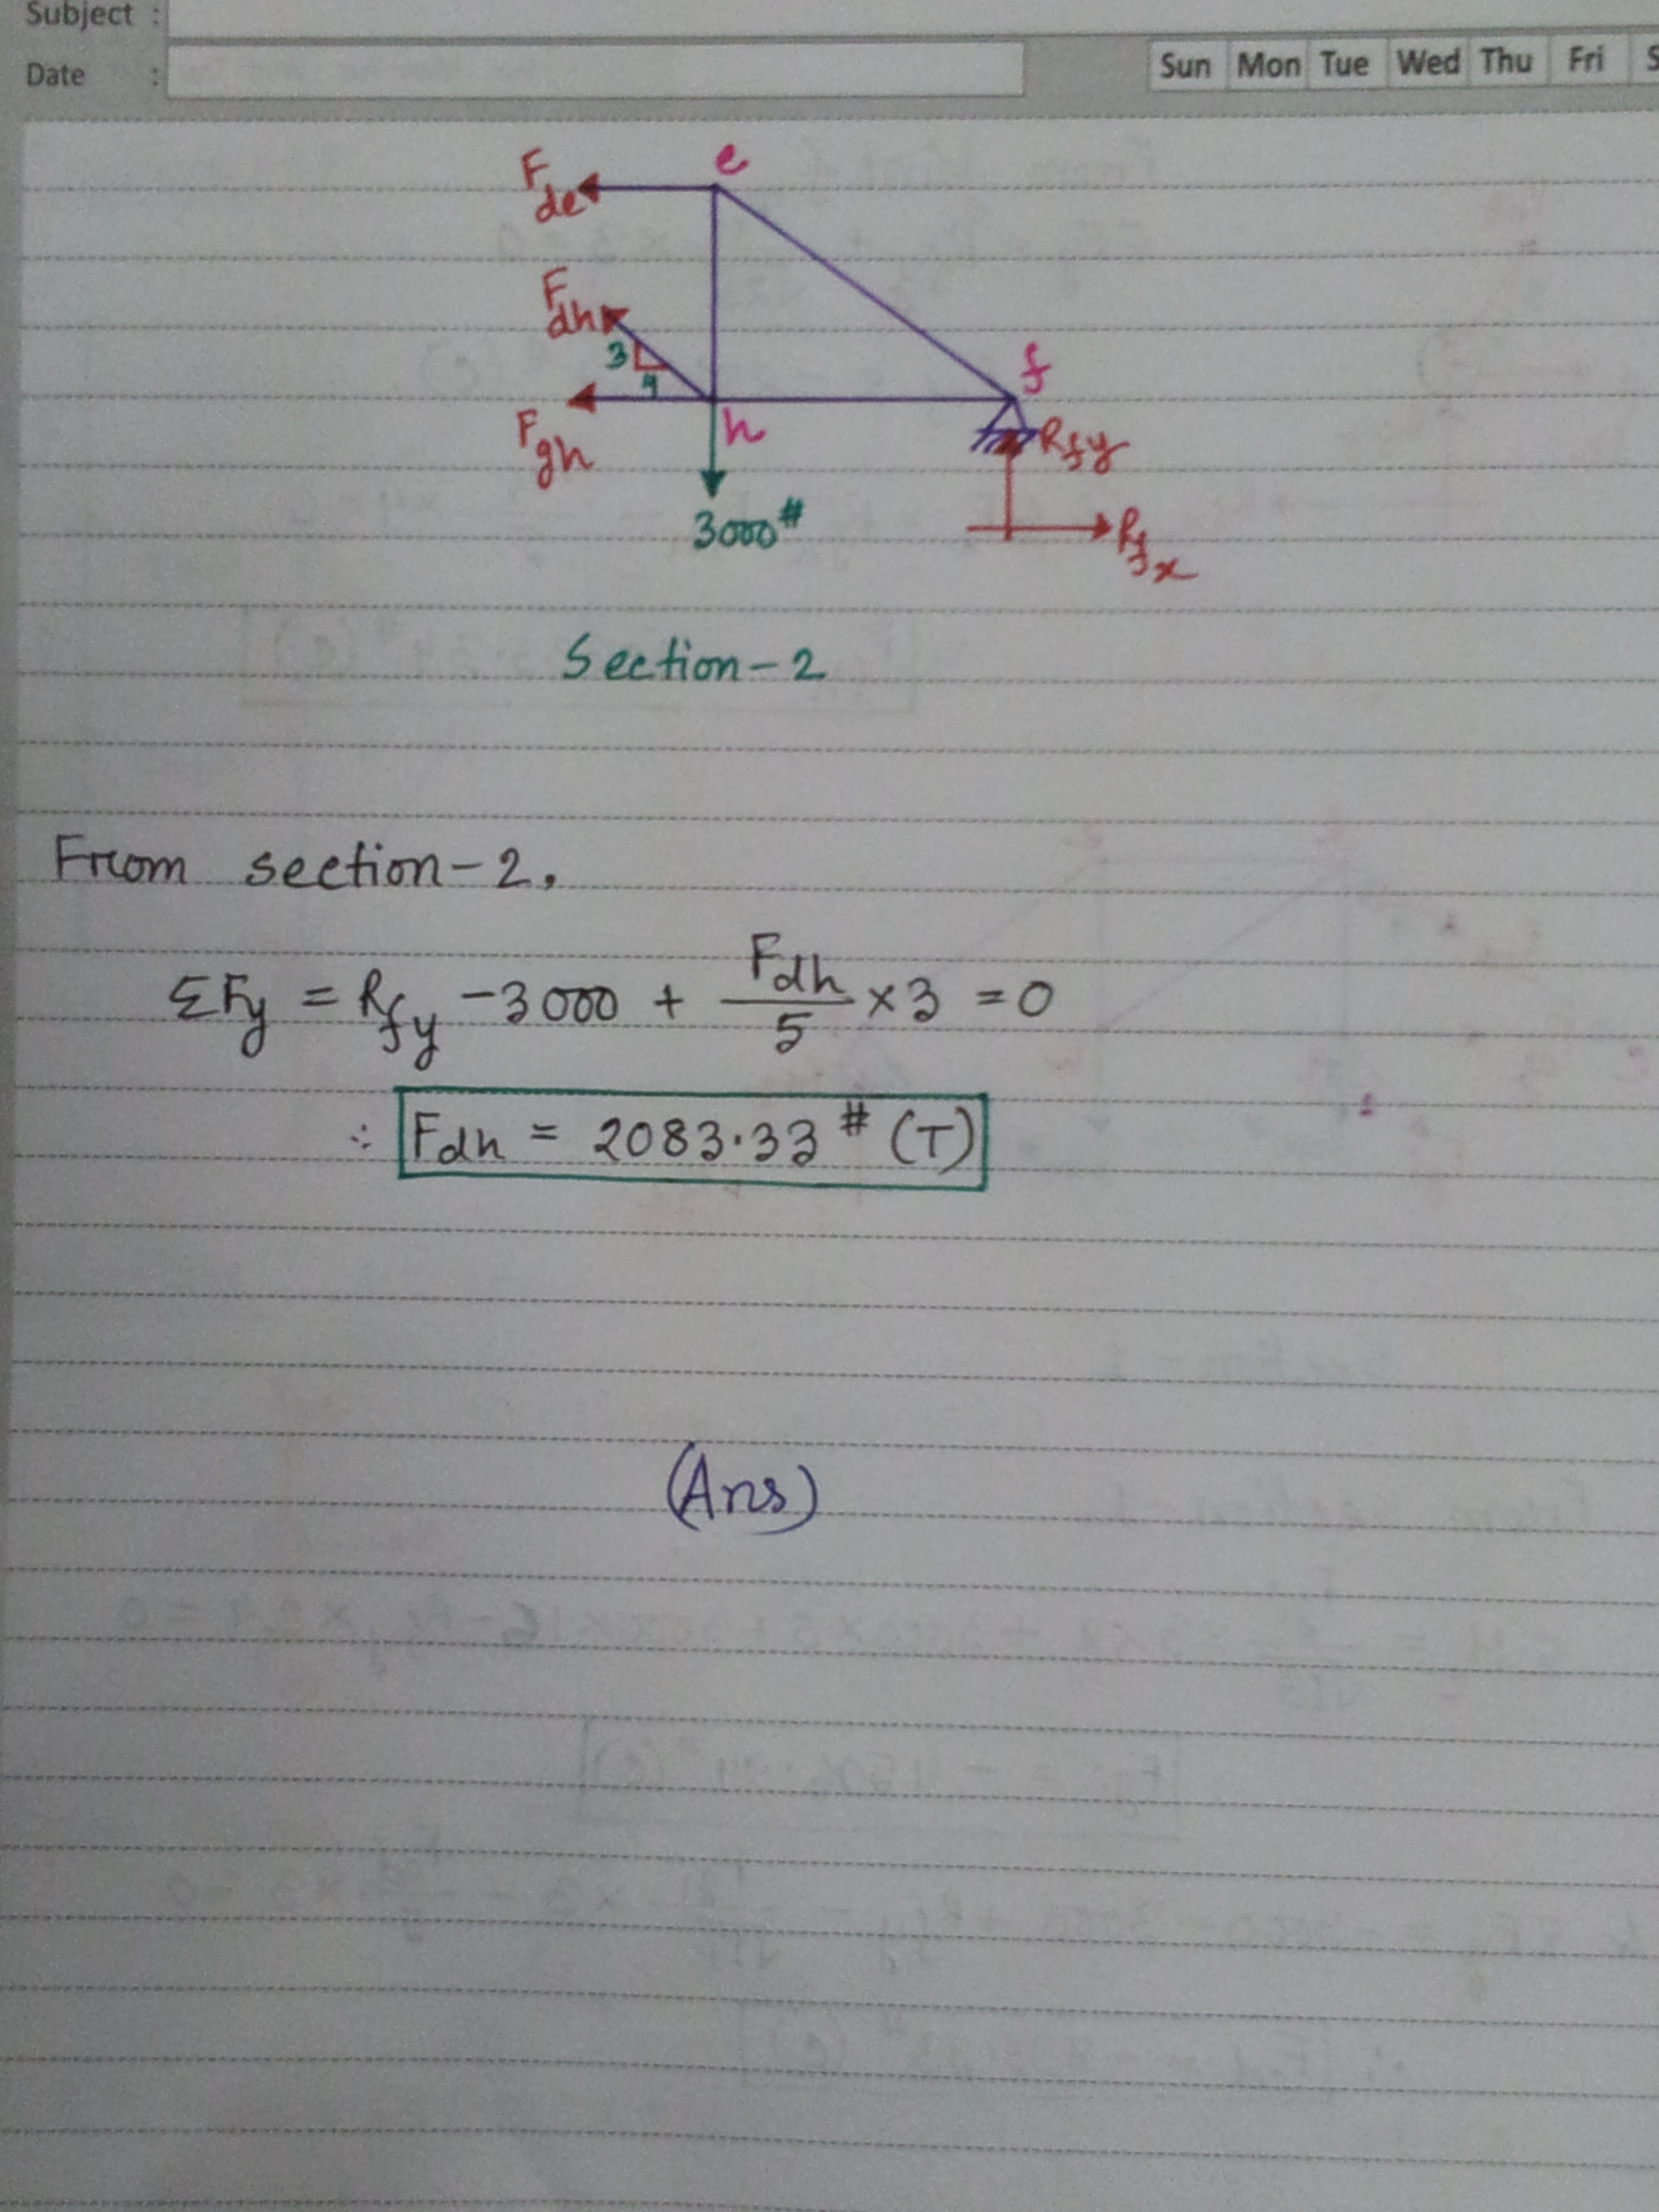 Subject :
Date :
Sun Mon Tue Wed Thu Fri S
e
F de
F dh
3
4
f
F gh
h
R fy
3000 #
R f x
Section-2
From section-2,
ΣFy = R fy -3000 + F dh / 5 × 3 = 0
∴ F dh = 2083.33 # (T)
(Ans)